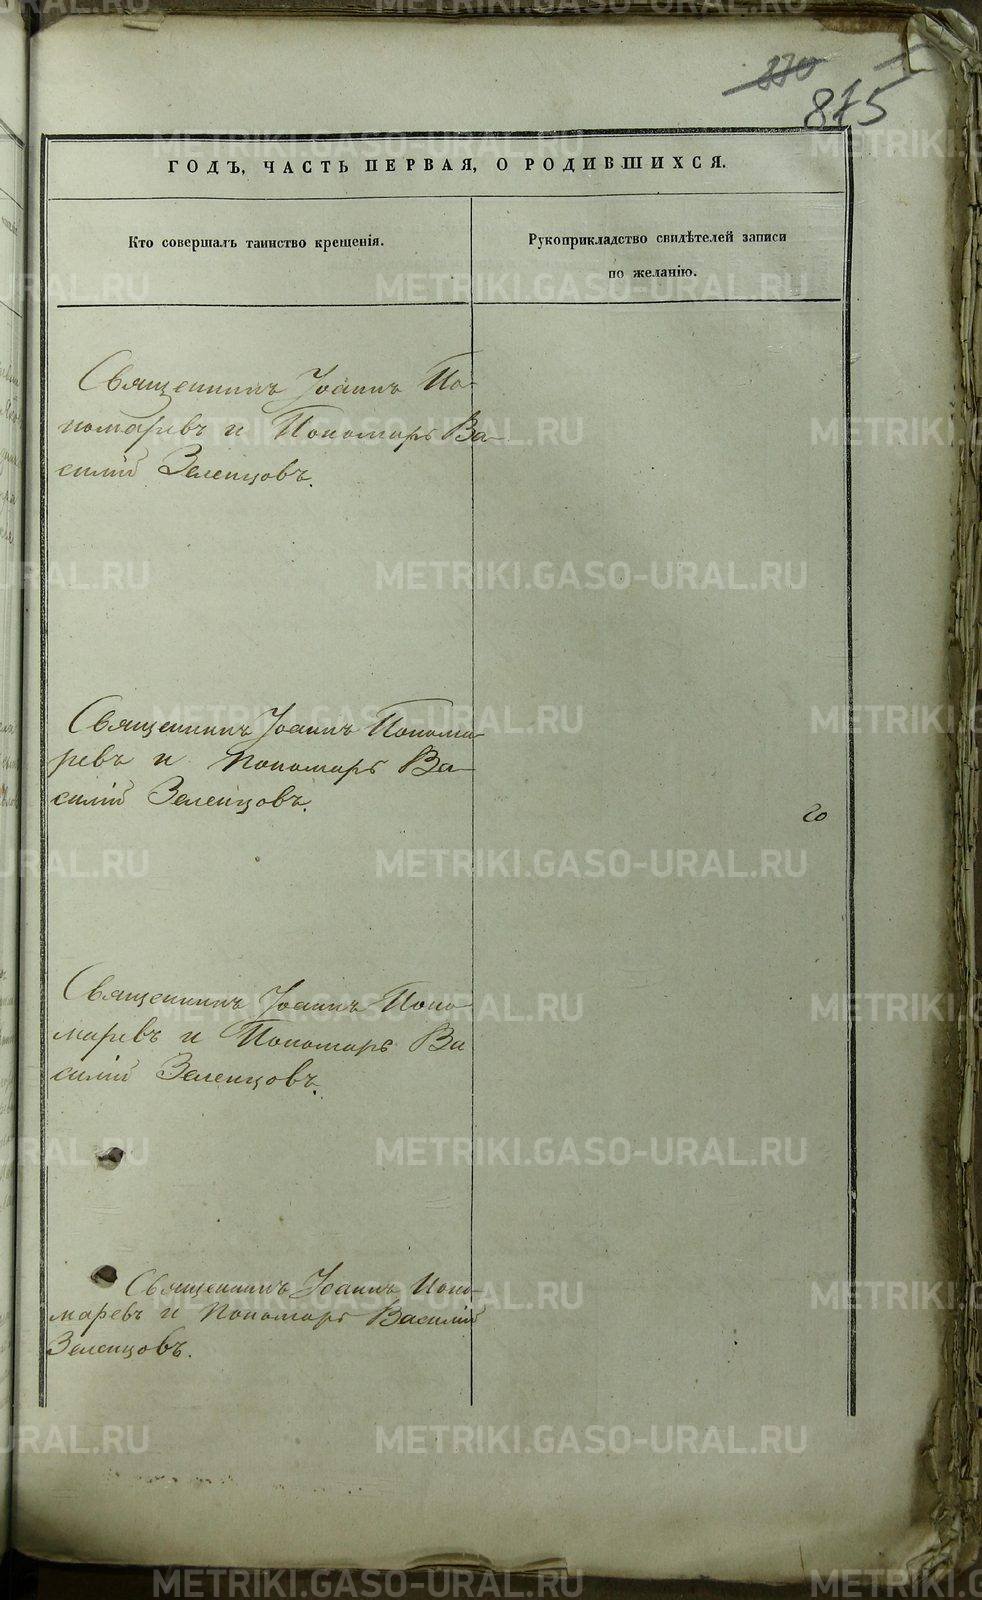 270
875
ГОДЪ, ЧАСТЬ ПЕРВАЯ, О РОДИВШИХСЯ.
Кто совершалъ таинство крещенія.
Рукоприкладство свидѣтелей записи
по желанію.
Священникъ Іоаннъ По-
номаревъ и Пономарь Ва-
силій Зеленцовъ.
Священникъ Іоаннъ Понома-
ревъ и Пономарь Ва-
силій Зеленцовъ.
20
Священникъ Іоаннъ Поно-
маревъ и Пономарь Ва
силій Зеленцовъ.
Священникъ Іоаннъ Поно-
маревъ и Пономарь Василій
Зеленцовъ.
METRIKI.GASO-URAL.RU